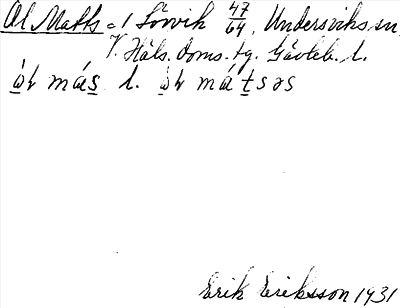 Ol Matts = 1 Sörvik 47/64, Undersviks sn,
V. Häls. doms. tg. Gävleb. l.
ȧ̱t más̱ l. ȧ̱t máṯsəs
Erik Eriksson 1931